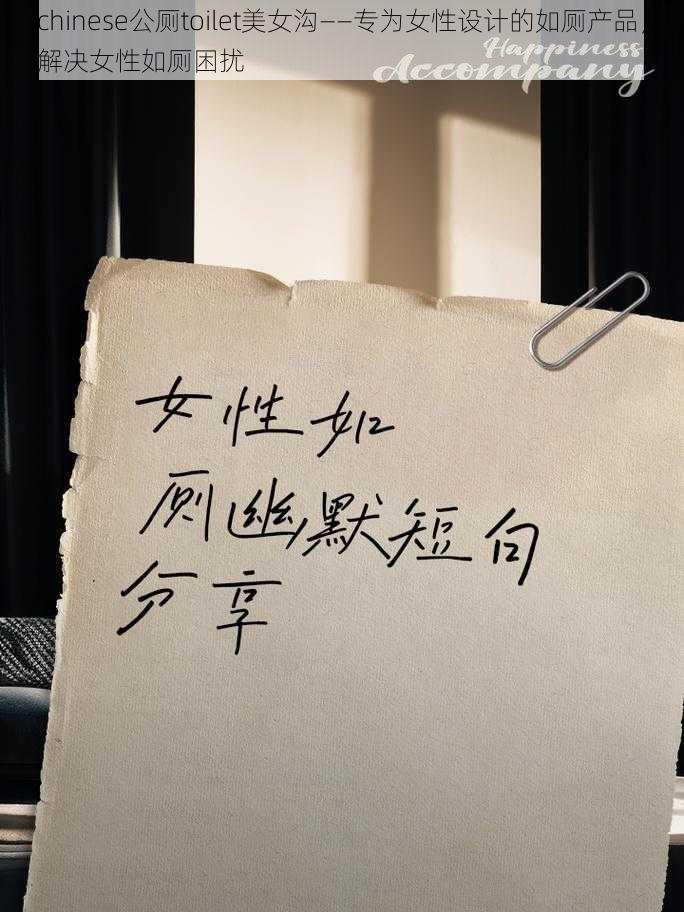 chinese公厕toilet美女沟——专为女性设计的如厕产品，
解决女性如厕困扰
Happiness
Accompany
女性如
厕幽默短句
分享